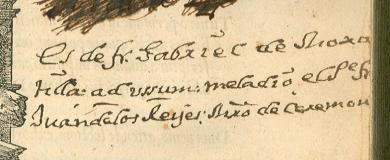 Es de fr. Gabriel de
tilla: ad ussum: me la dió el Pe fr
Juan de los Reyes: de ceremon